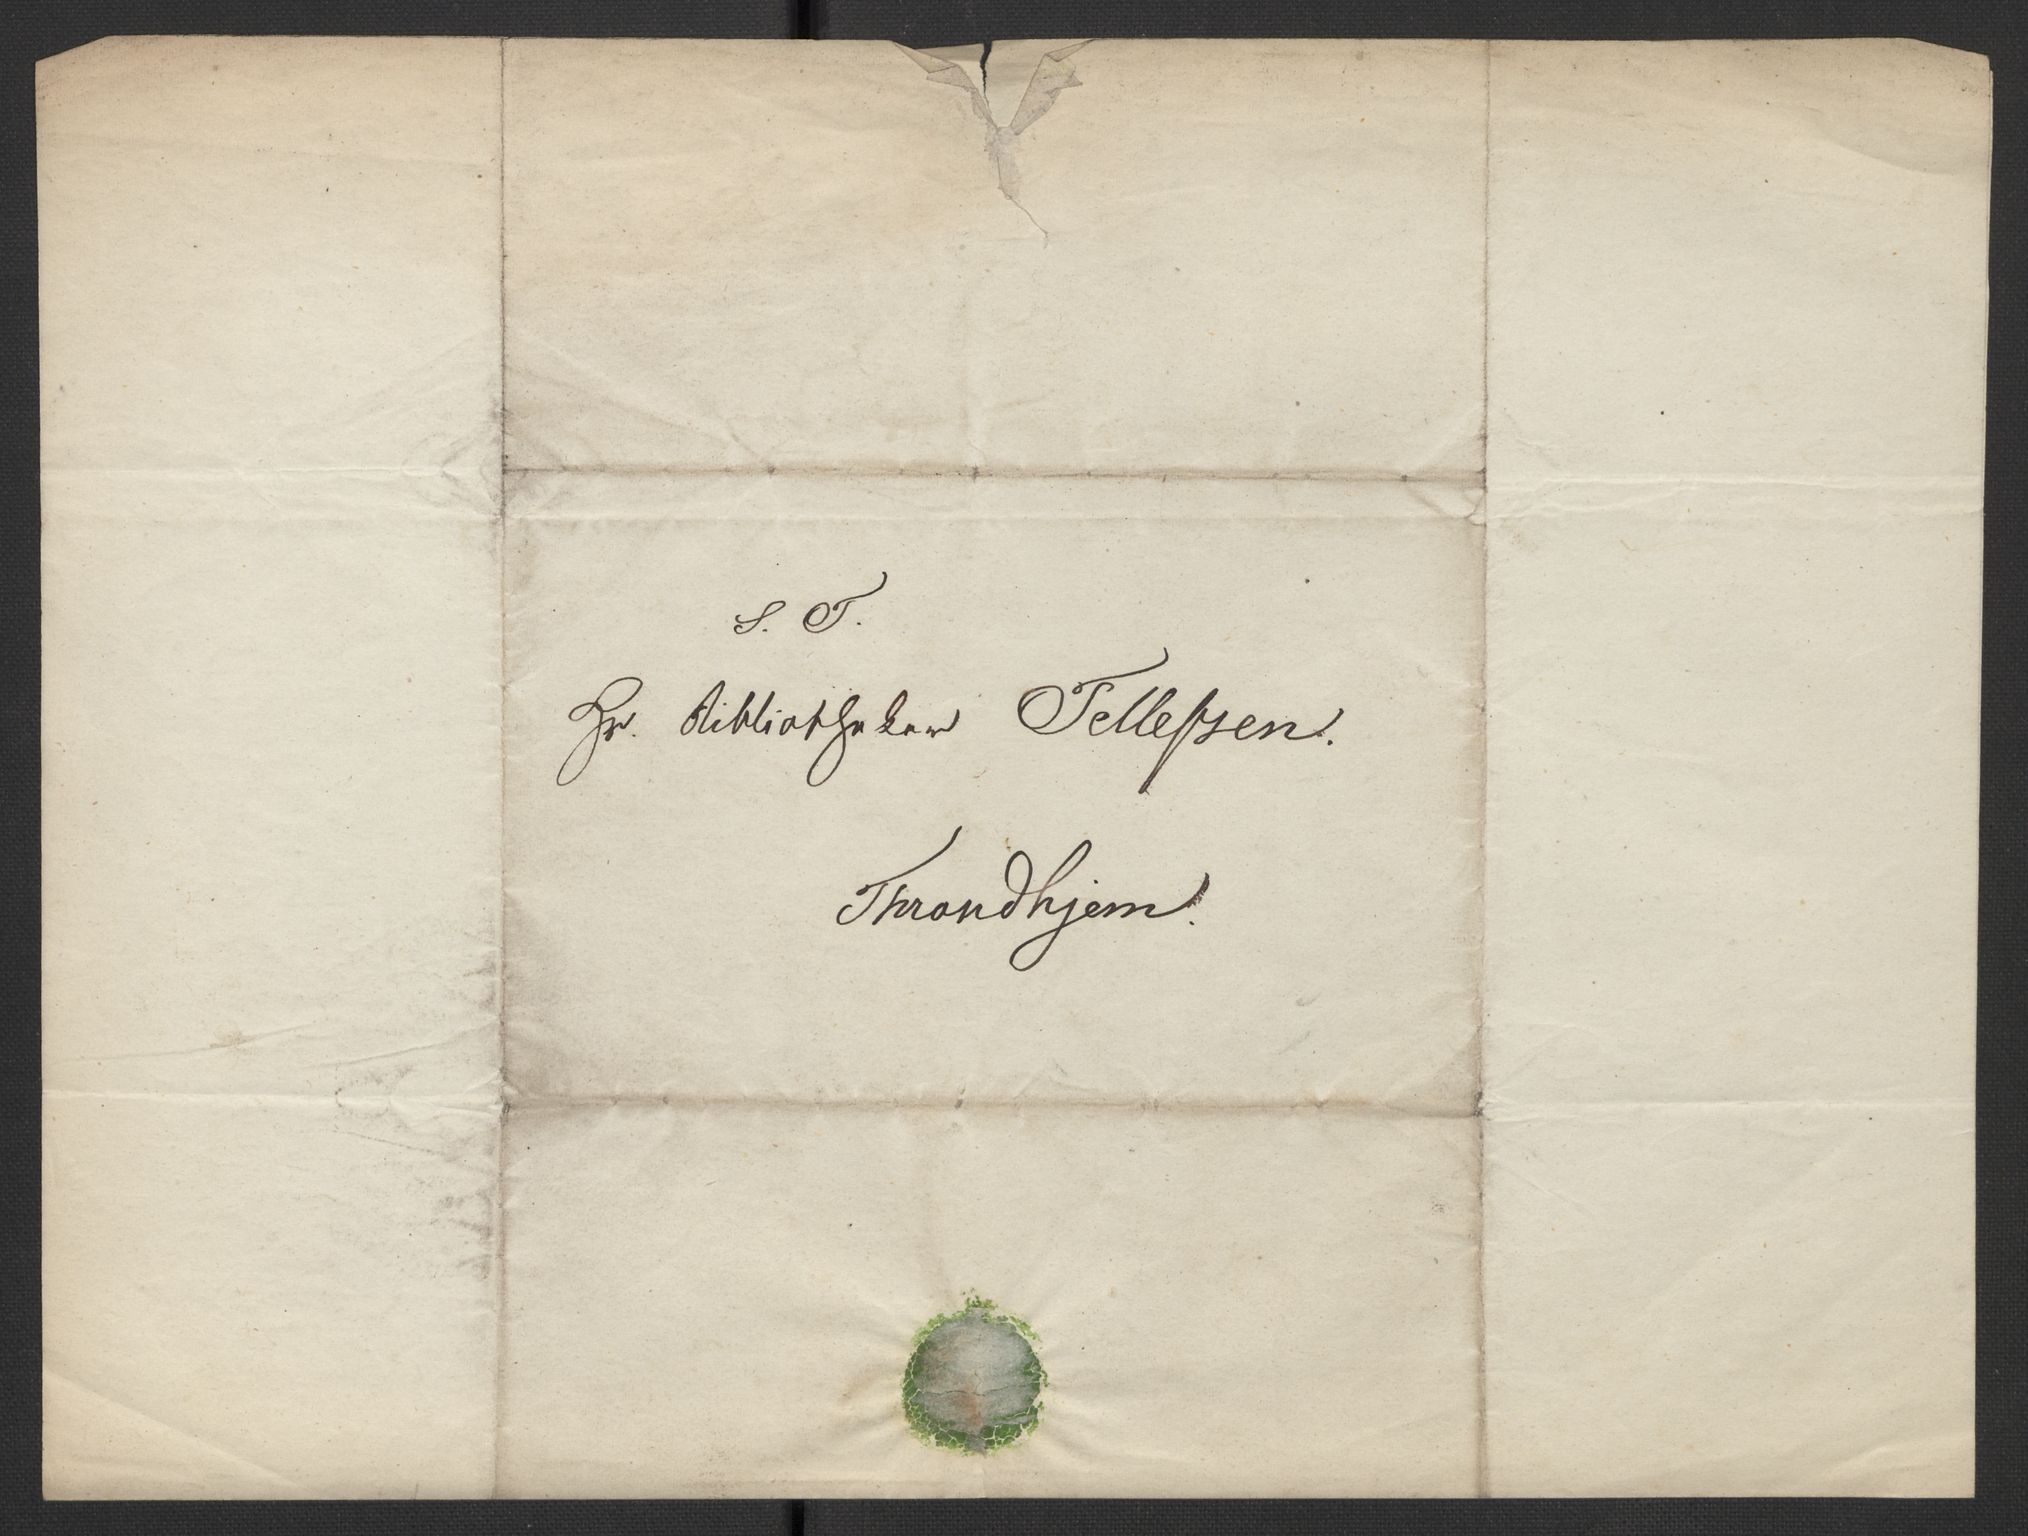 S. T.
Hr. Bibliotheker Tellefsen.
Throndhjem.